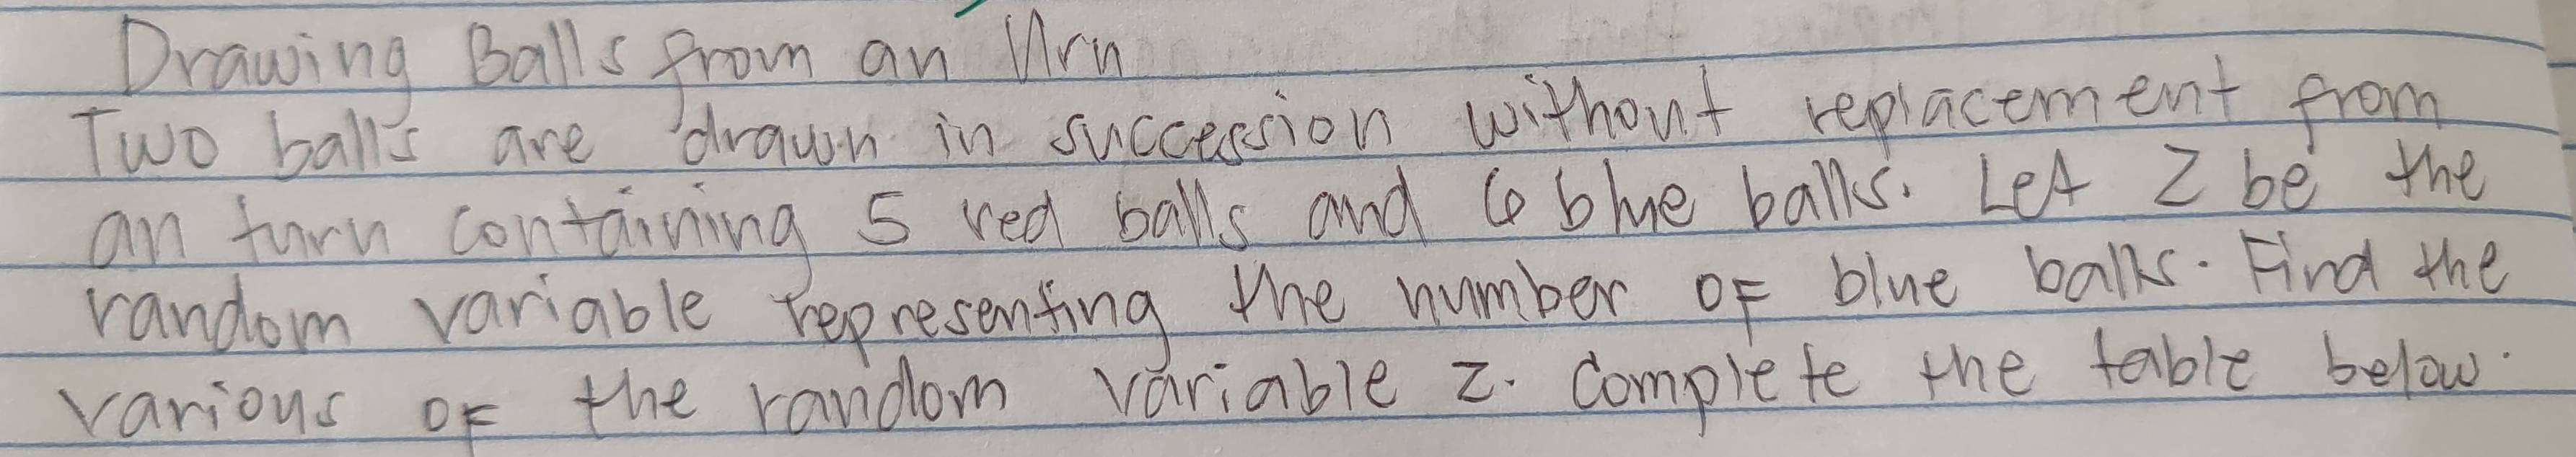 Drawing Balls from an Urn
Two balls are drawn in succession without replacement from
an turn containing 5 red balls and 6 blue balls. Let Z be the
random variable representing the number of blue balls. Find the
various of the random variable z. Complete the table below.